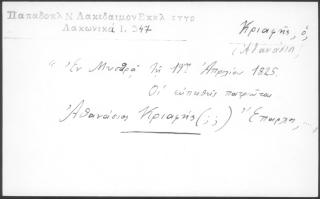 Παπαδοπλ Ν Λακιδαιμον Εκκλ εγγρ
Λακωνικά Ι. 347
Κριαφής, ὁ,
(Ἀθανάσιος)
"Ἐν Μυσθρᾷ τῇ 17ῃ Ἀπριλίου 1825.
Οἱ εὐπειθεῖς πατριῶται
Ἀθανάσιος Κριαφής (;;) Ἔπαρχ